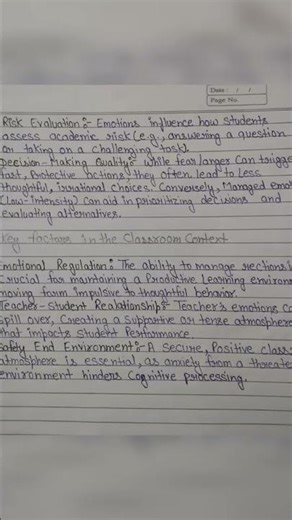 Date : / /
Page No.
Risk Evaluation:- Emotions influence how students
assess academic risk (e.g., answering a question
or taking on a challenging task).
Decision-Making Quality:- While fear/anger can trigge
fast, Protective actions, they often lead to less
thoughtful, irrational choices. Conversely, Managed emot
(Low-intensity) can aid in prioritizing decisions and
evaluating alternatives.
Key factors in the Classroom Context
Emotional Regulation:- The ability to manage reactions i
crucial for maintaining a Productive Learning environm
moving form impulsive to thoughtful behavior.
Teacher-Student Realationship:- Teacher's emotions ca
spill over, Creating a supportive or tense atmosphere
that impacts Student Performance.
Safety End Environment:- A Secure, Positive class
atmosphere is essential, as anxiety from a threate
environment hinders Cognitive processing.